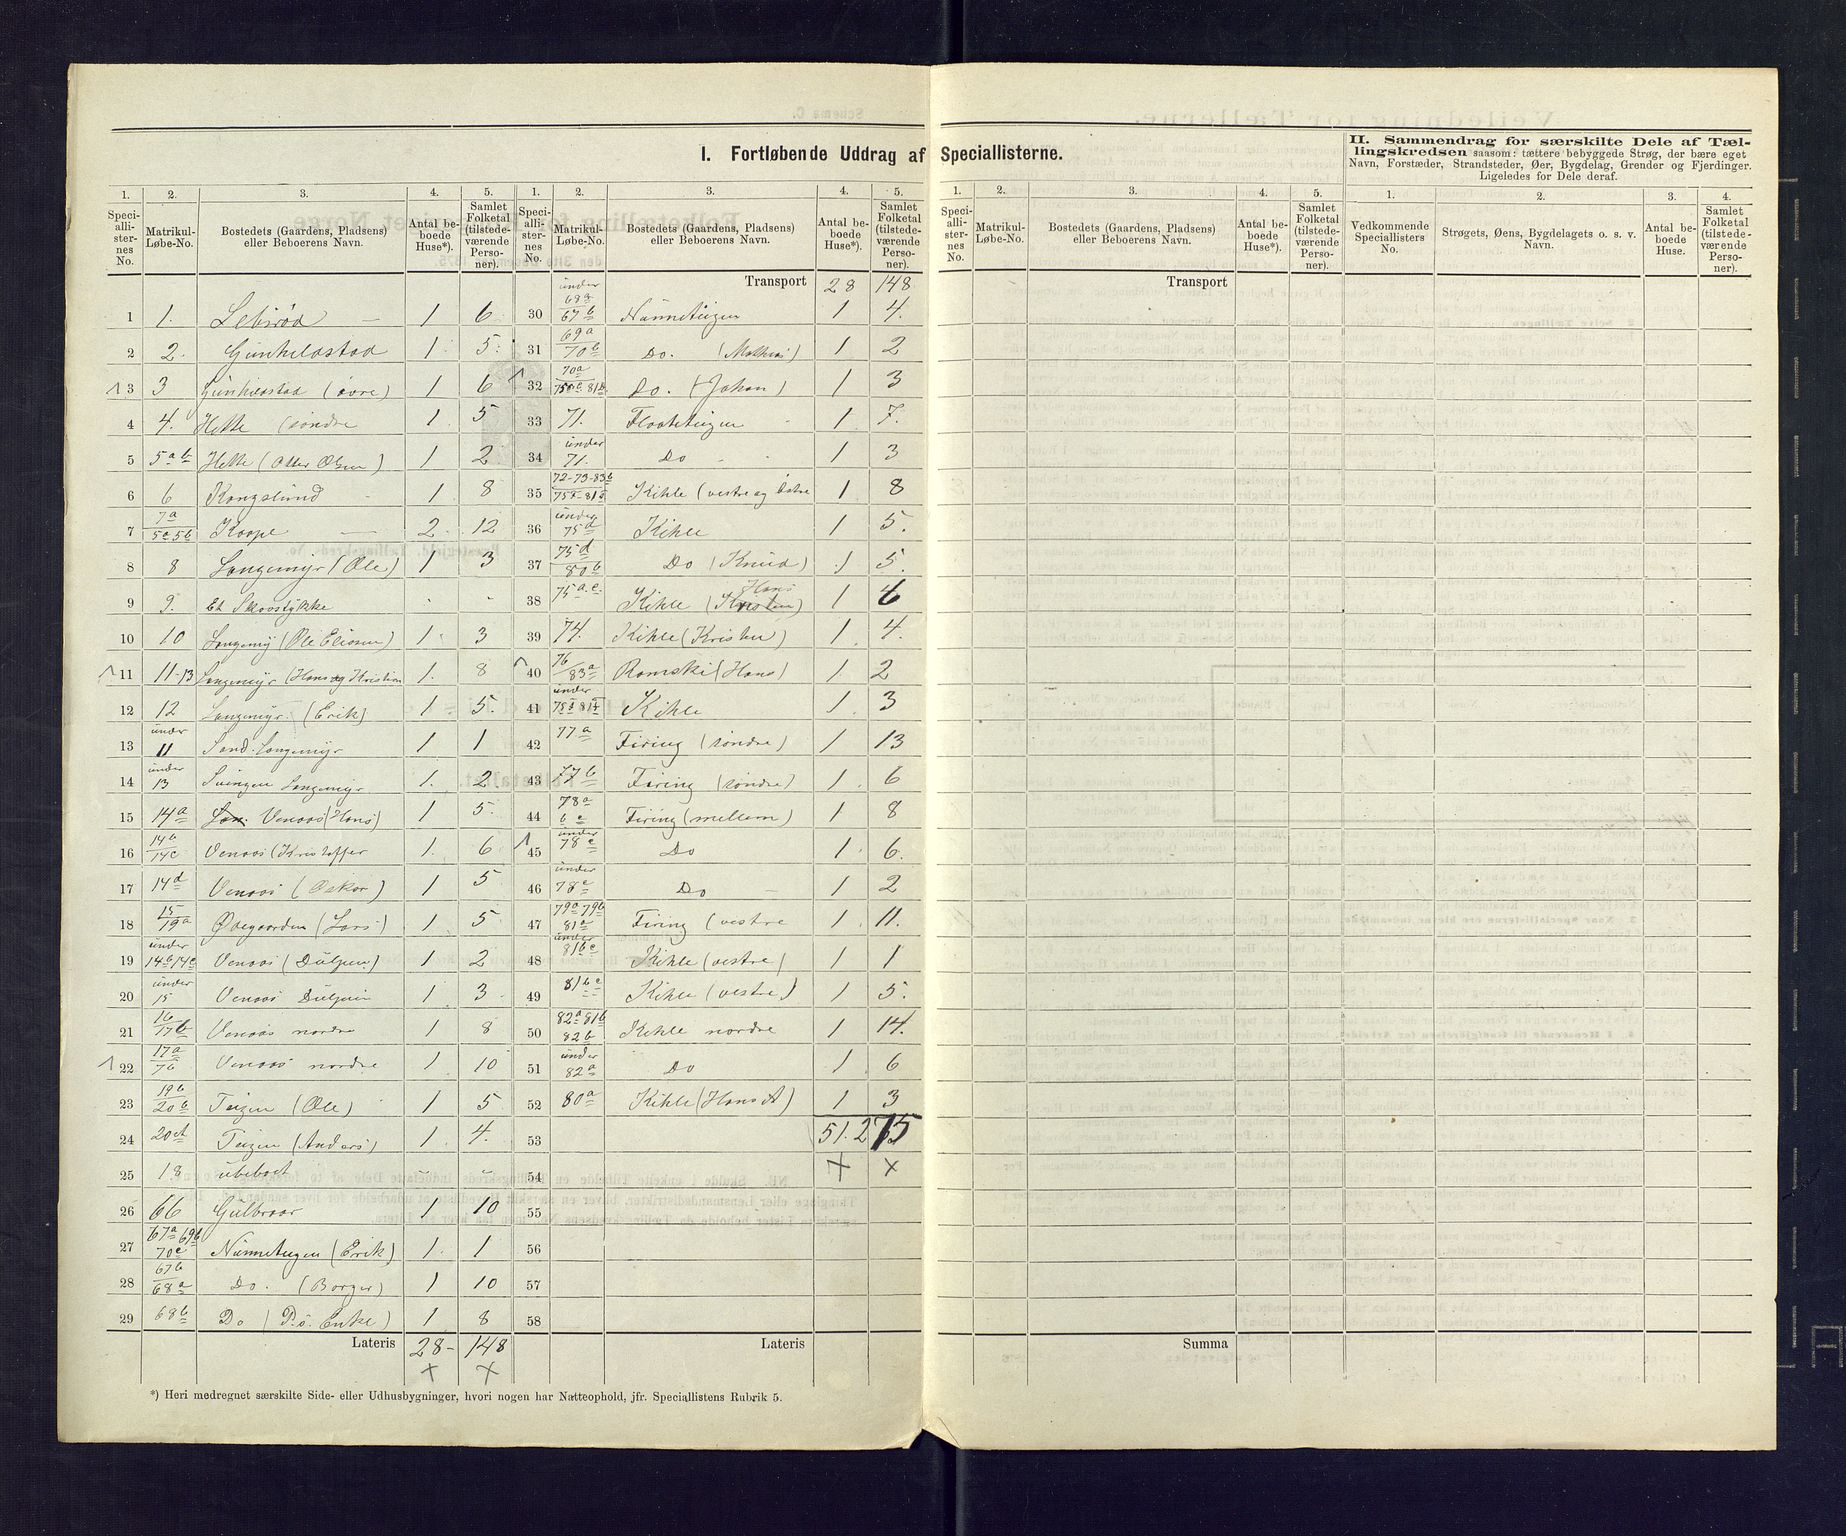 I. Fortløbende Uddrag af Speciallisterne.
II. Sammendrag for særskilte Dele af Tæl-
lingskredsen saasom: tættere bebyggede Strøg, der bære eget
Navn, Forstæder, Strandsteder, Øer, Bygdelag, Grender og Fjerdinger.
Ligeledes for Dele deraf.
1. 2. 3. 4. 5. 1. 2. 3. 4. 5. 1. 2. 3. 4. 5. 1. 2. 3. 4.
Speci-alli-ster-nes No. Matrikul-Løbe-No. Bostedets (Gaardens, Pladsens) eller Beboerens Navn. Antal be-boede Huse*). Samlet Folketal (tilstede-værende Perso-ner).
Speci-alli-ster-nes No. Matrikul-Løbe-No. Bostedets (Gaardens, Pladsens) eller Beboerens Navn. Antal be-boede Huse*). Samlet Folketal (tilstede-værende Perso-ner).
Speci-alli-ster-nes No. Matrikul-Løbe-No. Bostedets (Gaardens, Pladsens) eller Beboerens Navn. Antal be-boede Huse*). Samlet Folketal (tilstede-værende Perso-ner).
Vedkommende Speciallisters No. Strøgets, Øens, Bygdelagets o. s. v. Navn. Antal be-boede Huse. Samlet Folketal (tilstede-værende Perso-ner).
1 1. Lebsrød 1 6
2 2. Gunhildstad 1 5
13 3 Gunhildstad (øvre) 1 6
4 4. Hette (søndre 1 5
5 5a b Hette (Otter Olsen) 1 2
6 6 Kongslund 1 8
7 7a 5a 5b Kaape 2 12
8 8 Langemyr (Ole) 1 3
9 9. Et Skovstykke - -
10 10 Langemy (Ole Eliasen) 1 3
11 11-13 Langemyr (Hans og Kristian 1. 8
12 12 Langemyr (Erik) 1 5.
13 under 11 Sand. Langemyr 1 1
14 under 13 Svingen Langemyr 1. 2
15 14a Venaas (Hans) 1 5
16 14b 14c Venaas (Kristoffer 1. 6
17 14d Venaas (Oskar) 1 5
18 15 19a Øvegaarden (Lars) 1 5
19 under 14b 14c Venaas (Dulpen) 1 2
20 under 15 Venaas Dulpen 1 3
21 16 17b Venaas nordre 1 8
22 17a 76 Venaas nordre 1 10
23 19b 20b Teigen (Ole) 1 5
24 20a Teigen (Anders) 1 4.
25 18 ubeboet
26 66 Gulbraar 1 10
27 67a 69b 70c Nunneteigen (Erik) 1. 1
28 67b 68a Do. (Borger) 1 10
29 68b Do (P.s. Enke) 1 8
Lateris 28- 148
Transport 28 148
30 under 68a 67b Nunneteigen 1 4.
31 69a 70b Do. (Mathias) 1 2
32 70a Do. (Johan) 1 3
33 71. Flaateteigen 1 7.
34 under 71. Do 1 3
35 72-73-83b Kihle (vestre og østre 1 8
36 under 75d Kihle 1 5.
37 75d 80b Do (Knud) 1 5.
38 75a.c. Kihle (Hans) 1 6
39 74. Kihle (Kristen) 1. 4.
40 76 83a Ramski (Hans) 1. 2
41 under Kihle 1. 3
42 77a Firing (søndre) 1 13
43 77b Firing (søndre) 1. 6
44 78a Firing (mellem) 1 8
45 under 78c Do 1. 6.
46 under 78c Do 1 2
47 79a 79b 81a Firing (vestre 1. 11.
48 under 81b c Kihle (vestre) 1 1
49 81b c Kihle (vestre) 1 5.
50 82a 81b 82b Kihle nordre 1 14.
51 under 82a Do 1. 6
52 80a Kihle (Hans A) 1 3
53 51. 275
54
55
56
57
58
Lateris
Transport
Summa
*) Heri medregnet særskilte Side- eller Udhusbygninger, hvori nogen har Natteophold, jfr. Speciallistens Rubrik 5.